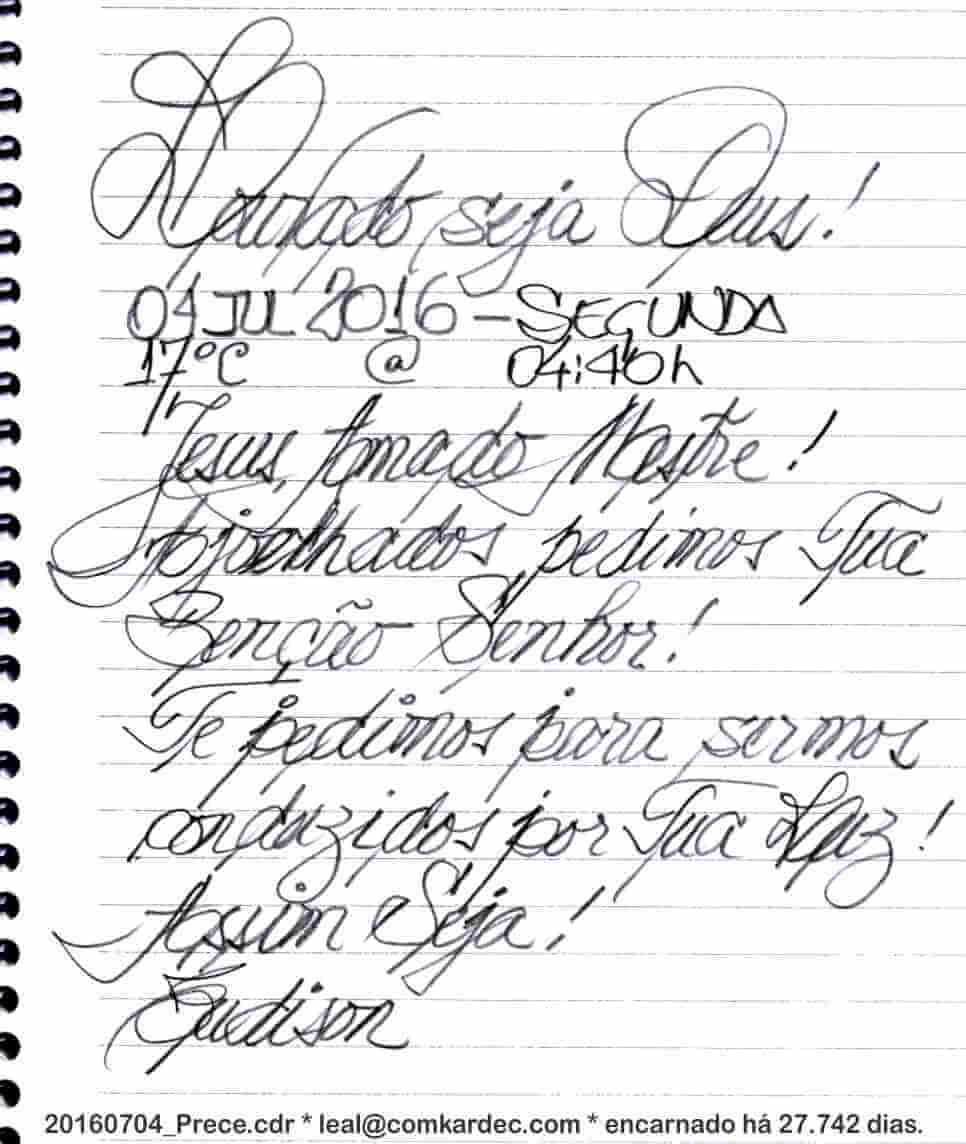 Louvado seja Deus!
04 JUL 2016 - SEGUNDA
17°C @ 04:40h
Jesus, Amado Mestre!
Ajoelhados, pedimos Tua
Benção Senhor!
Te pedimos para sermos
conduzidos por Tua Luz!
Assim Seja!
Eudison
20160704_Prece.cdr * leal@comkardec.com * encarnado há 27.742 dias.